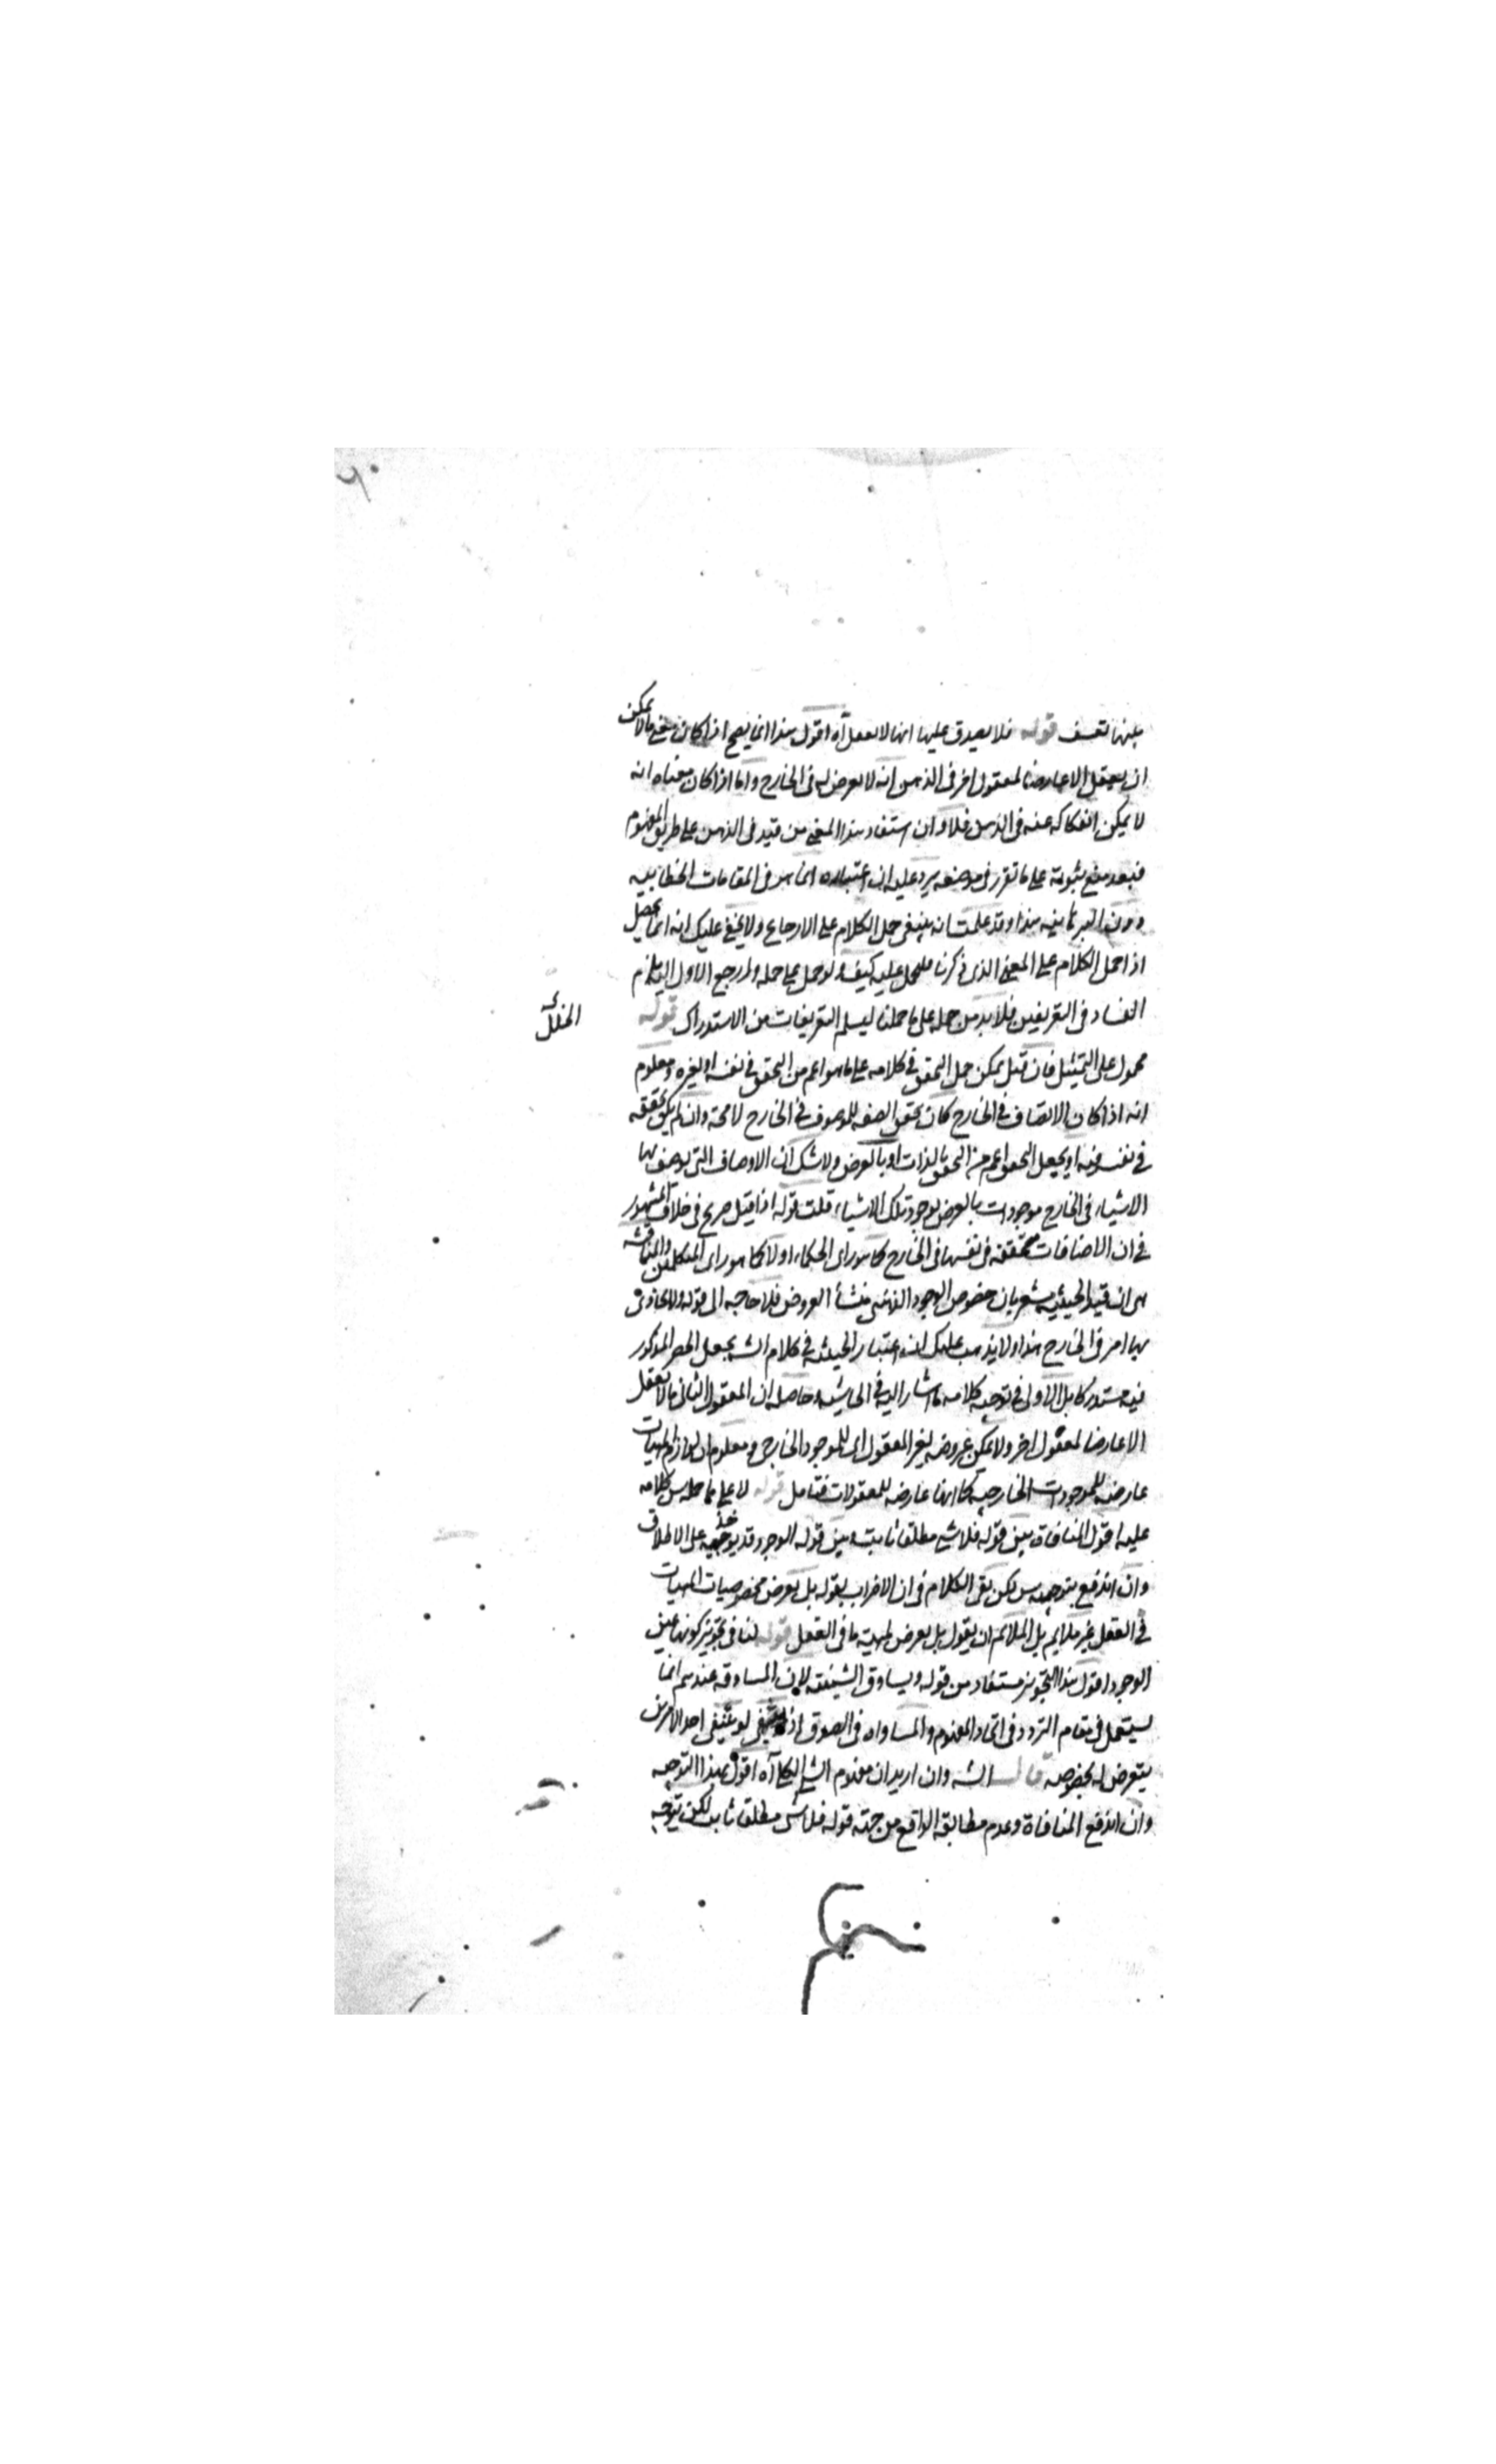 بينها تعسف قوله فلا يصدق عليها انها لا تعقل آه اقول هذا انما يصح اذا كان معنى ما لا يمكن
ان يعقل الا عارضا لمعقول اخر فى الذهن انه لا يعرض له فى الخارج واما اذا كان معناه انه
لا يمكن انفكاكه عنه فى الذهن فلا وان استفاد هذا المعنى من قيد فى الذهن على طريق المفهوم
فبعد منع ثبوته على ما تقرر فى موضعه يرد عليه ان اعتباره انما هو فى المقامات الخطابيه
دون البرهانيه هذا وقد علمت انه ينبغى حمل الكلام على الارجاع ولا يخفى عليك انه انما يحصل
اذا حمل الكلام على المعنى الذى ذكرنا فليحمل عليه كيف ولو حمل على ما حمله ولم يرجع الاول اليه يلزم
الفساد فى التعريفين فلا بد من حمله على ما حملنا ليسلم التعريفات من الاستدراك قوله
الخلل
محمول على التمثيل فان قيل يمكن حمل التحقق فى كلامه على ما هو اعم من التحقق فى نفسه او لغيره ومعلوم
انه اذا كان الاتصاف فى الخارج كان تحقق الصفه للموصوف فى الخارج لا محة وان لم يكن تحققه
فى نفسه فيه او يجعل التحقق اعم من التحقق بالذات او بالعرض ولا شك ان الاوصاف التى يوصف بها
الاشياء فى الخارج موجودات بالعرض لوجود تلك الاشياء قلت قوله اذا قيل صريح فى خلاف المشهور
فى ان الاضافات متحققه فى نفسها فى الخارج كما هو راى الحكماء اولا كما هو راى المتكلمين والمناقشه
هى ان قيد الحيثيه يشعر بان خصوص الوجود الذهنى منشأ العروض فلا حاجه الى قوله ولا يحاذى
بها امر فى الخارج هذا ولا يذهب عليك ان اعتبار الحيثيه فى كلام الشه يجعل الحصر المذكور
فيه مستدركا بل الاولى فى توجيه كلامه ما اشار اليه فى الحاشيه وحاصله ان المعقول الثانى ما لا يعقل
الا عارضا لمعقول اخر ولا يمكن عروضه لغير المعقول اى للموجود الخارجى ومعلوم ان لوازم المهيات
عارضه للموجودات الخارجيه كما انها عارضه للمعقولات فتامل قوله لا على ما حمله س كلامه
عليه اقول المنافاة بين قوله فلا شى مطلقا ثابت وبين قوله الوجود قد يوخذ على الاطلاق
وان اندفع بتوجيه س لكن بقى الكلام فى ان الاضراب بقوله بل يعرض مخصوصيات المهيات
فى العقل غير ملايم بل الملائم ان يقول بل يعرض لمهية ما فى العقل قوله لنا فى تجويز كونها عين
الوجود اقول هذا التجويز مستفاد من قوله ويساوق الشيئيه لان المساوقه عندهم انما
يستعمل فى مقام التردد فى اتحاد المفهوم والمساواه فى الصدق اذ لو تيقن احد الامرين
يتعرض له بخصوصه قال الشه وان اريد ان مفهوم الشى الكلى آه اقول بهذا التوجيه
وان اندفع المنافاة وعدم مطابقه الواقع من جهة قوله فلا شى مطلقا ثابت لكن يتوجه